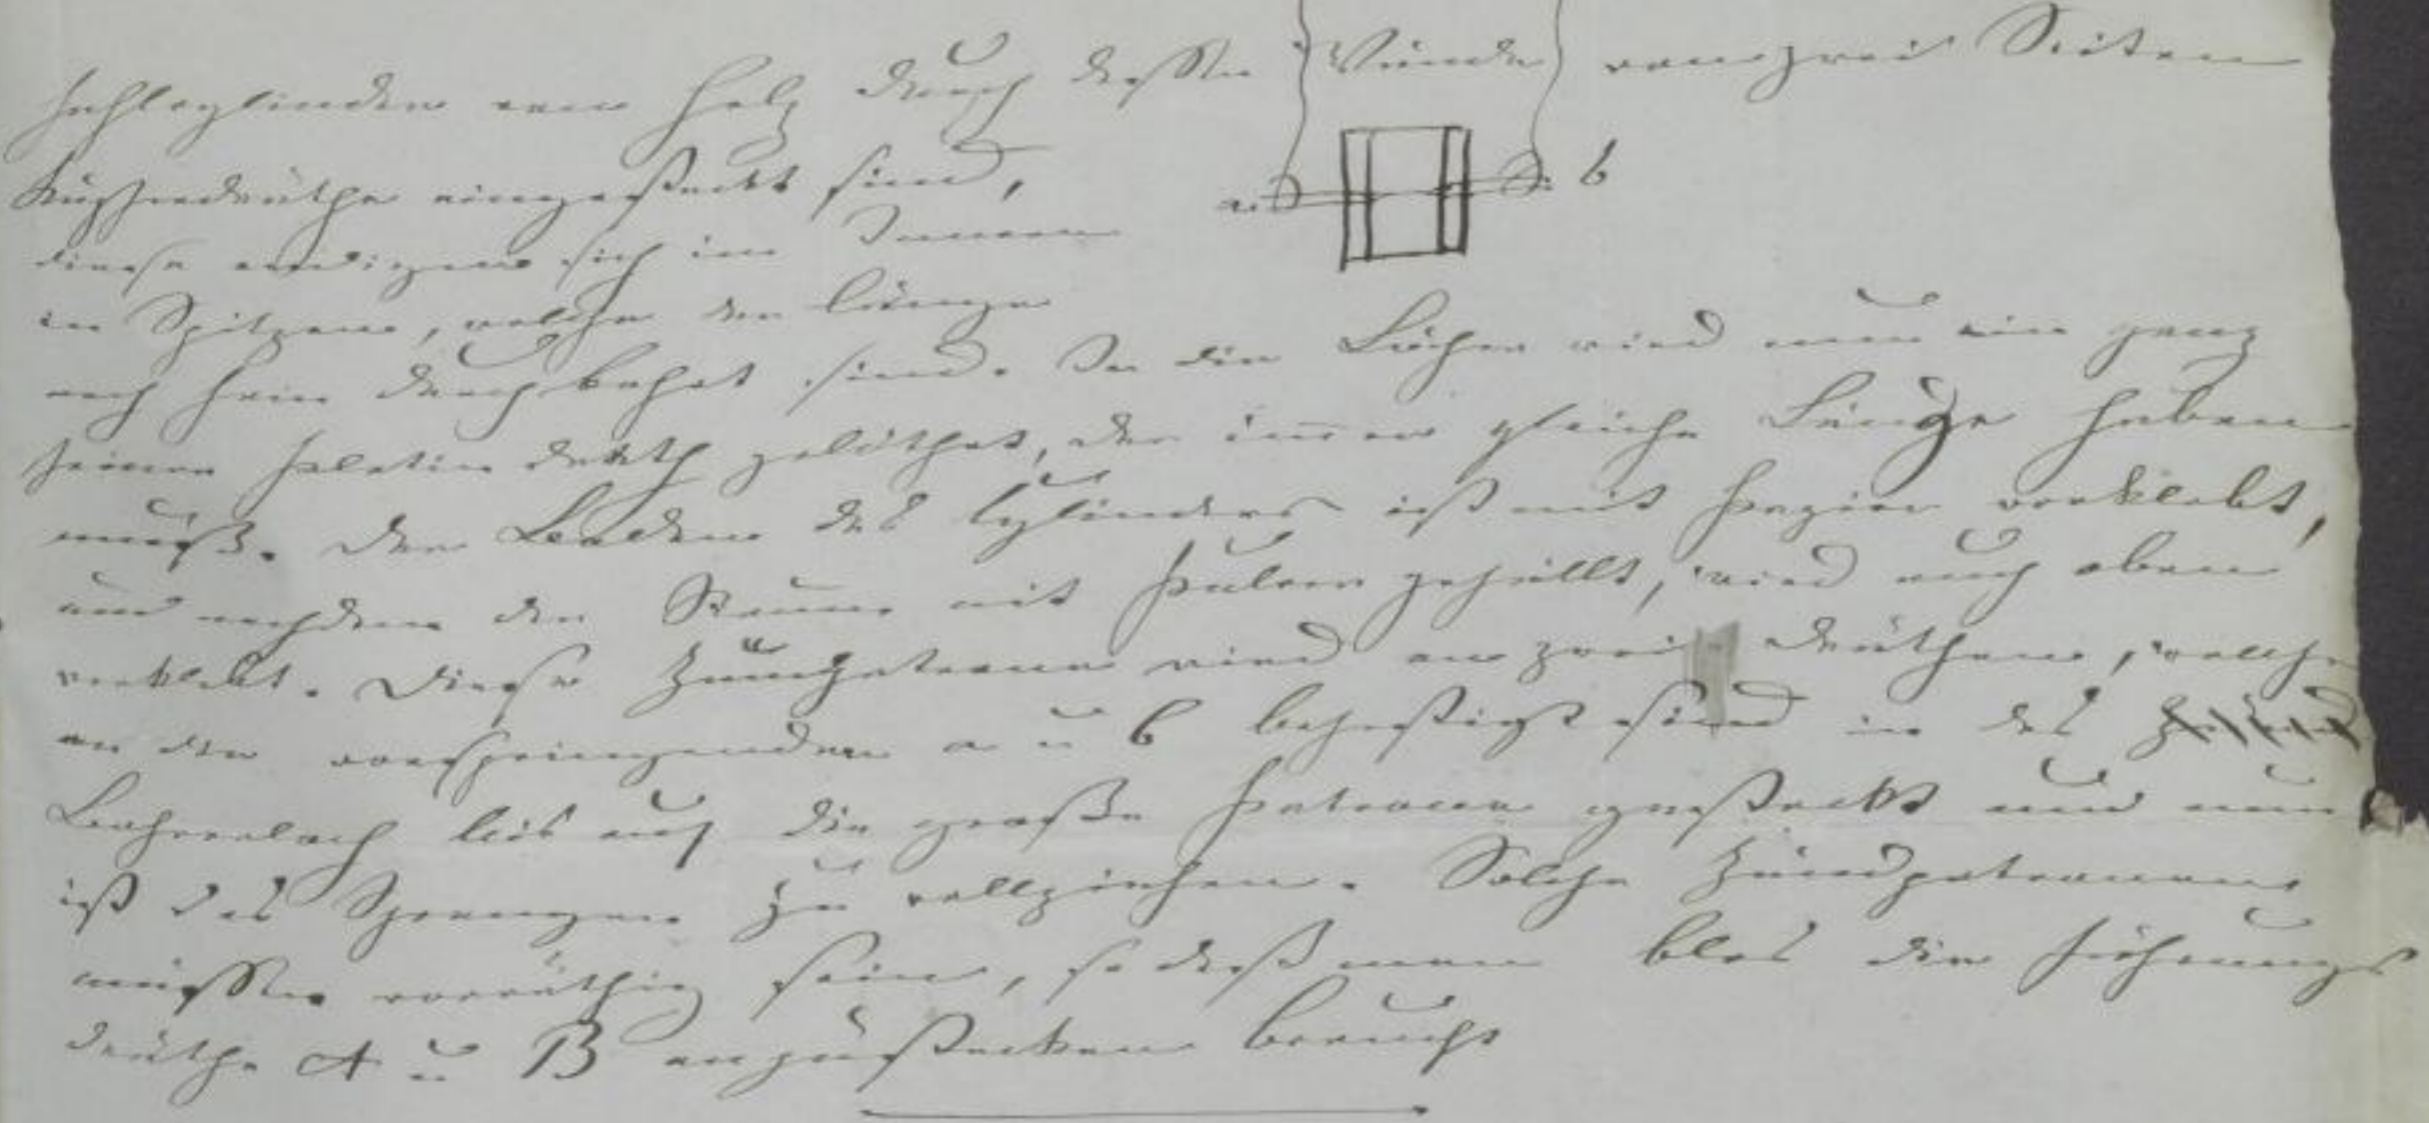 Hohlcylinder von Holz durch dessen Wände von zwei Seiten
Kupferdräthe eingesteckt sind,
a b
diese endigen sich im Innern
in Spitzen, welche der Länge
nach fein durchbohrt sind. In die Löcher wird nun ein ganz
feiner Platindrath gelöthet, der immer gleiche Länge haben
muß. Der Boden des Cylinders ist mit Papier verklebt,
und nachdem der Raum mit Pulver gefüllt, wird auch oben
verklebt. Diese Zündpatrone wird an zwei Dräthen, welche
an die vorspringenden a u b befestigt sind in das
Bohrerloch bis auf die große Patrone gesteckt und nun
ist das Sprengen zu vollziehen. Solche Zündpatronen
müssen vorräthig sein, so daß man blos die Führungs
dräthe A u B anzustecken braucht